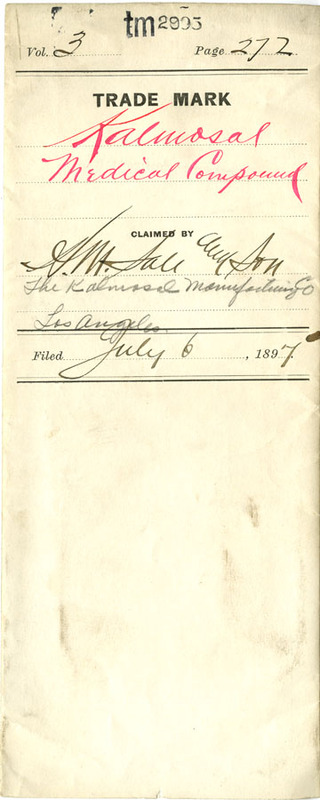 tm 2995
Vol. 3 Page 272
TRADE MARK
Kalmosal
Medical Compound
CLAIMED BY
Sale and Son
The Kalmosal Manufacturing Co
Los Angeles.
Filed July 6, 1897.